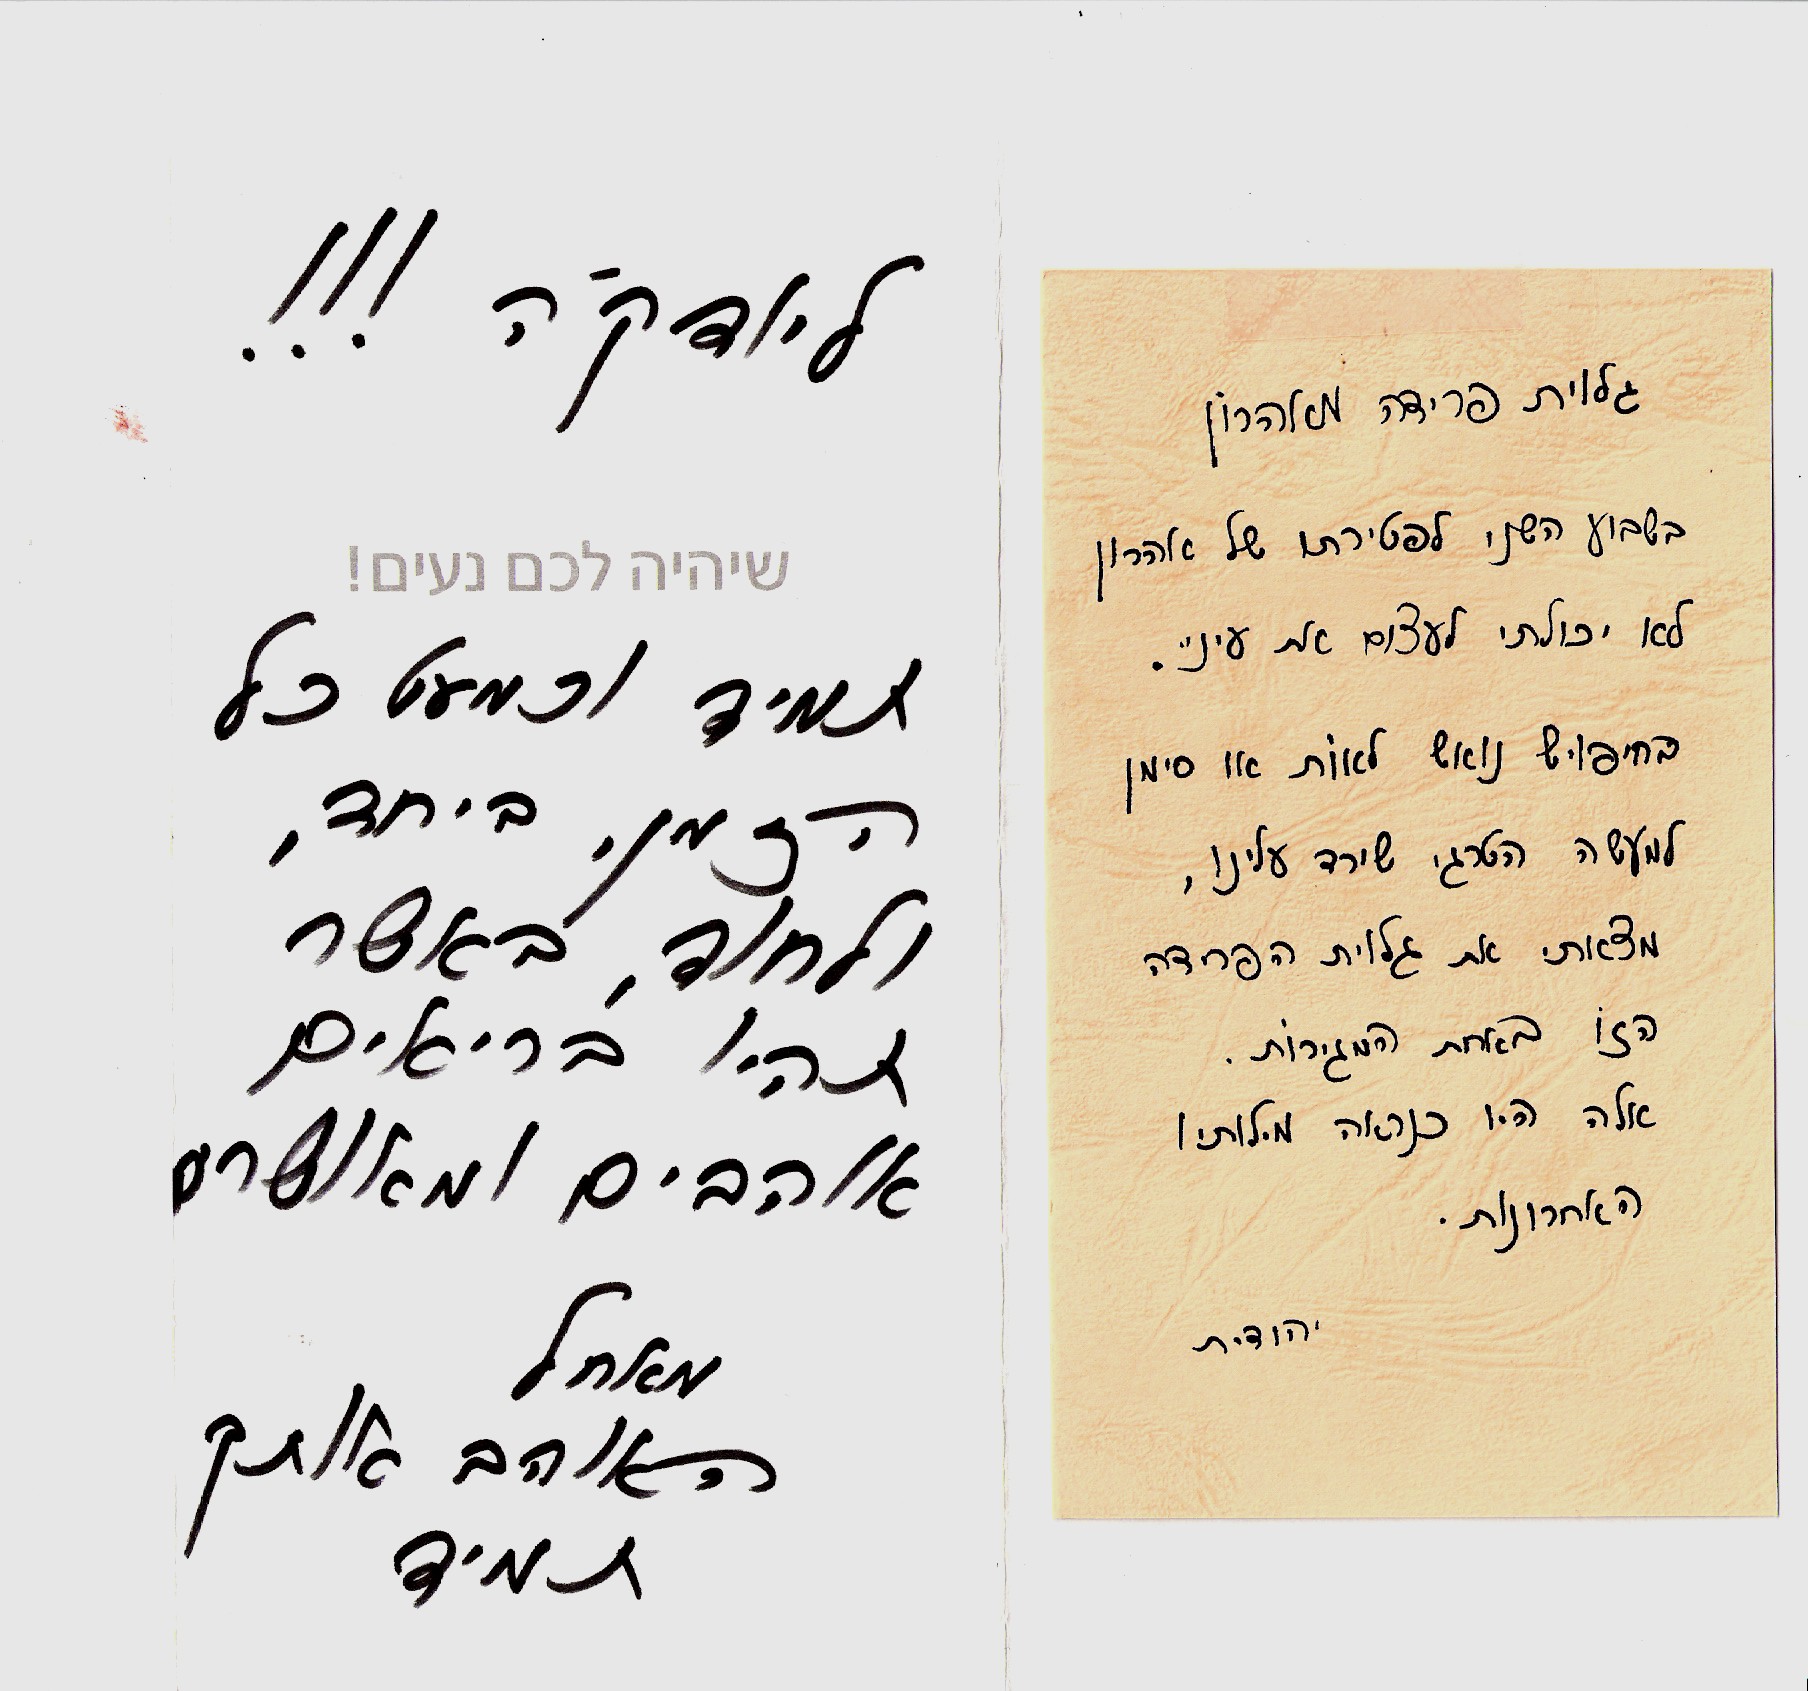 ליודק׳ה !!!
שיהיה לכם נעים!
תמיד וכמעט כל
הזמני ביחד,
ולחוד, באשר
תהיו בריאים
אוהבים ומאושרים
מאחל
האוהב אותך
תמיד
גלוית פרידה מאהרון
בשבוע השני לפטירתו של אהרון
לא יכולתי לעצום את עיניי.
בחיפויש נואש לאות או סימן
למעשה הטרגי שירד עלינו,
מצאותי את גלוית הפרידה
הזו באחת המגירות.
אלה היו כנראה מילותיו
האחרונות.
יהודית